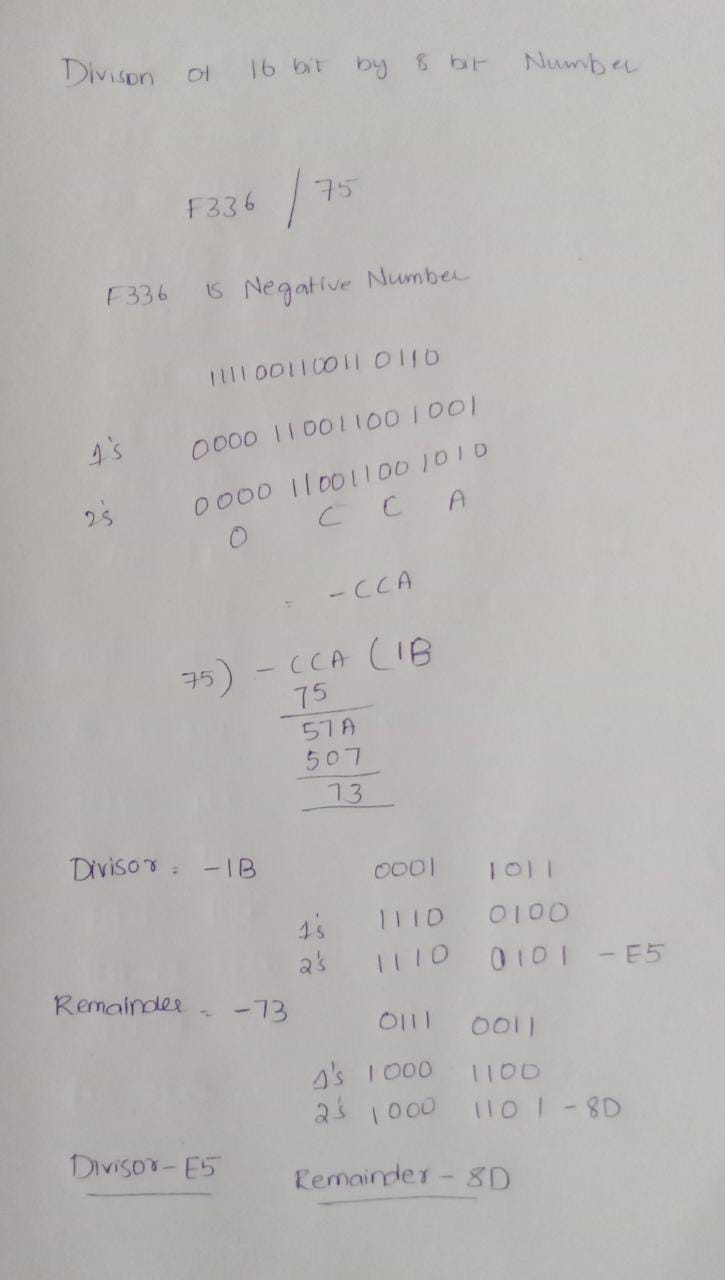 Divison of 16 bit by 8 bit Number
F336 / 75
F336 is Negative Number
1111 0011 0011 0110
1's 0000 1100 1100 1001
2's 0000 1100 1100 1010
0 C C A
= -CCA
75) - CCA (1B
75
57A
507
73
Divisor = -1B 0001 1011
1's 1110 0100
2's 1110 0101 - E5
Remainder = -73 0111 0011
1's 1000 1100
2's 1000 1101 - 8D
Divisor - E5 Remainder - 8D